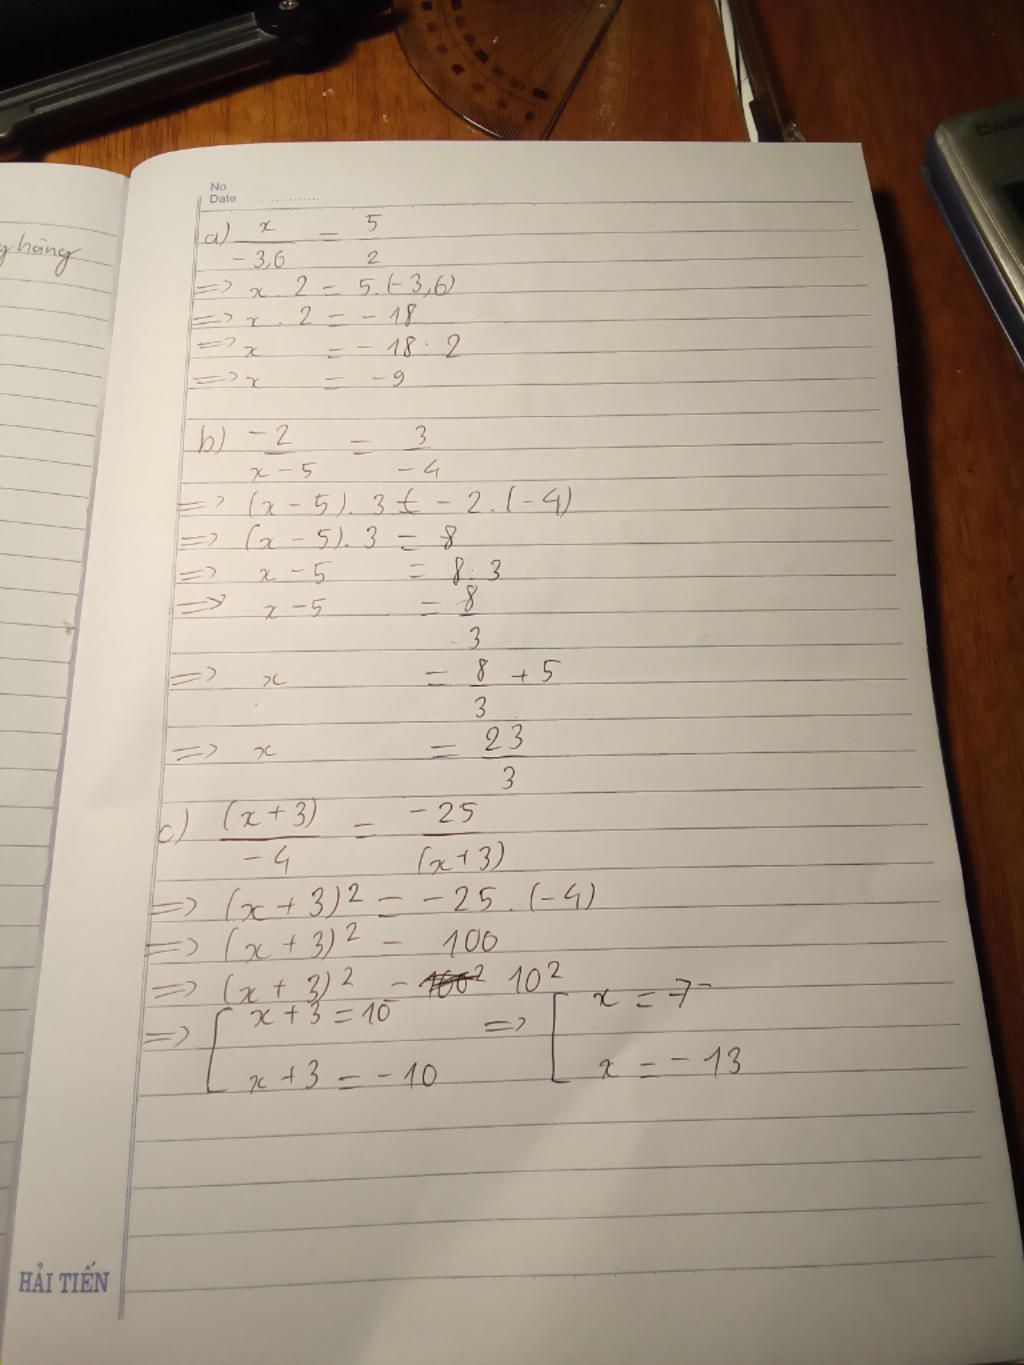 CAS
No.
Date
y hàng
a) x/-3,6 = 5/2
=> x . 2 = 5.(-3,6)
=> x . 2 = - 18
=> x = - 18 : 2
=> x = -9
b) -2/x-5 = 3/-4
=> (x-5). 3 = - 2.(-4)
=> (x-5). 3 = 8
=> x-5 = 8 : 3
=> x-5 = 8/3
=> x = 8/3 + 5
=> x = 23/3
c) (x+3)/-4 = -25/(x+3)
=> (x+3)² = -25.(-4)
=> (x+3)² = 100
=> (x+3)² = 10²
=> [ x+3 = 10 => [ x = 7
x+3 = -10 x = -13
HẢI TIẾN